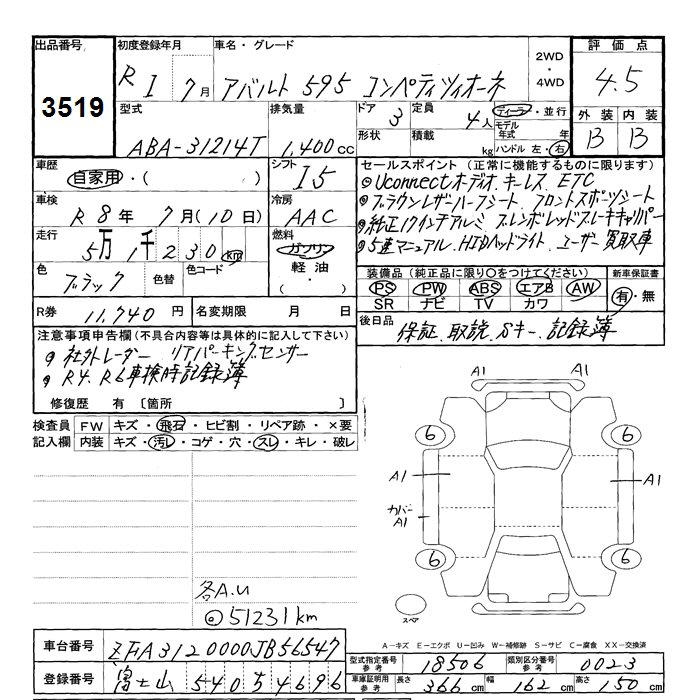 出品番号
3519
初度登録年月
R 1 7月
車名・グレード
アバルト 595 コンペティツィオーネ
2WD・4WD
評価点
4.5
外装 内装
B B
型式
ABA-31214T
排気量
1,400cc
ドア 3
形状
定員 4人
積載 kg
ディーラー・並行
モデル年式 年
ハンドル 左・右
車歴
自家用・( )
シフト
I5
車検
R 8年 7月(10日)
冷房
AAC
走行
5万1千230km
燃料
ガソリン
軽油・
( )
色
ブラック
色替
色コード
R券 11,740円
名変期限 月 日
セールスポイント(正常に機能するものに限ります)
◎Uconnectオーディオ.キーレス ETC
◎ブラウンレザーハーフシート.フロントスポーツシート
◎純正17インチアルミ ブレンボレッドブレーキキャリパー
◎5速マニュアル.HIDヘッドライト.ユーザー買取車
装備品(純正品に限り○をつけてください)
PS PW ABS エアB AW
SR ナビ TV カワ
新車保証書
有・無
後日品
保証.取説.Sキー.記録簿
注意事項申告欄(不具合内容等は具体的に記入して下さい)
◎社外レーダー リアパーキングセンサー
◎R4.R6車検時記録簿
修復歴 有 〔箇所 〕
検査員記入欄
FW キズ・飛石・ヒビ割・リペア跡・×要
内装 キズ・汚レ・コゲ・穴・スレ・キレ・破レ
A1 A1
6 6
A1 A1
カバー
A1
6 6
スペア
各A.U
◎51231km
A-キズ E-エクボ U-凹み W-補修跡 S-サビ C-腐食 XX-交換済
車台番号 ZFA3120000JB56547
登録番号 富士山 540 す 4696
型式指定番号 参考 18506
類別区分番号 参考 0023
車庫証明用 参考 長さ 366cm 幅 162cm 高さ 150cm